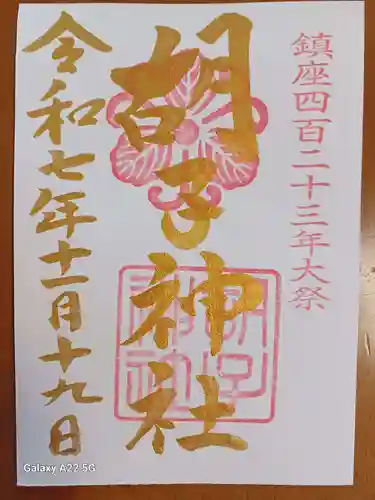 鎮座四百二十三年大祭
胡子神社
令和七年十一月十九日
胡子
神社
Galaxy A22 5G